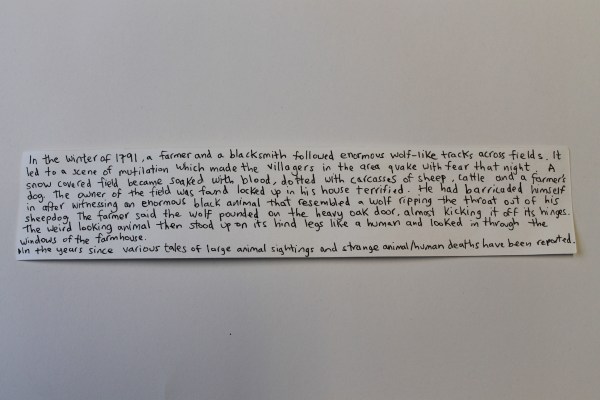 In the winter of 1791, a farmer and a blacksmith followed enormous wolf-like tracks across fields. It
led to a scene of mutilation which made the villagers in the area quake with fear that night. A
snow covered field became soaked with blood, dotted with carcasses of sheep, cattle and a farmer's
dog. The owner of the field was found locked up in his house terrified. He had barricaded himself
in after witnessing an enormous black animal that resembled a wolf ripping the throat out of his
sheepdog. The farmer said the wolf pounded on the heavy oak door, almost kicking it off its hinges.
The weird looking animal then stood up on its hind legs like a human and looked in through the
windows of the farmhouse.
In the years since various tales of large animal sightings and strange animal/human deaths have been reported.